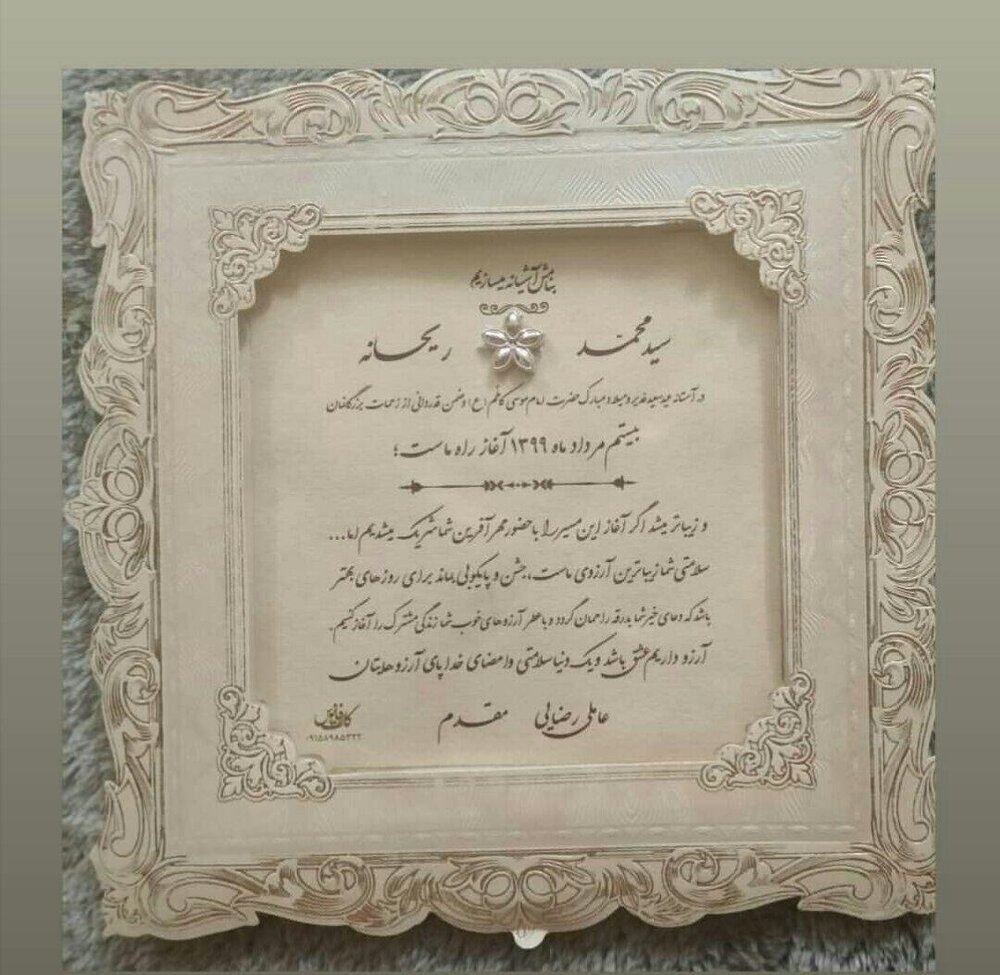 بنامش آشیانه میسازیم
سید محمّد ریحانه
در آستانه عید سعید غدیر و میلاد مبارک حضرت امام موسی کاظم (ع) و ضمن قدردانی از زحمات بزرگانمان
بیستم مرداد ماه ۱۳۹۹ آغاز راه ماست؛
و زیباتر میشد اگر آغاز این مسیر را با حضور مهرآفرین شما شریک میشدیم اما...
سلامتی شما زیباترین آرزوی ماست، جشن و پایکوبی بماند برای روزهای بهتر
باشد که دعای خیر شما بدرقه راهمان گردد و با عطر آرزوهای خوب شما زندگی مشترک را آغاز کنیم.
آرزو داریم عشق باشد و یک دنیا سلامتی و امضای خدا پای آرزوهایتان
عاملی رضایی مقدم
۰۹۱۵۸۹۸۵۳۲۲